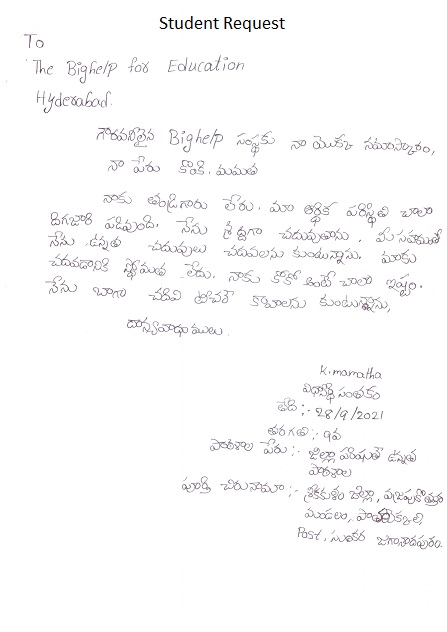 Student Request
To
The Bighelp for Education
Hyderabad.
గౌరవనీలైన Bighelp సంస్థకు నా యొక్క నమాస్కారం,
నా పేరు కొంకి. మమత
నాకు తండ్రిగారు లేరు. మా ఆర్థిక పరిస్థితి చాలా
దిగజారి పడివుంది. నేను శ్రద్దగా చదువుతాను. మీ సహయంతో
నేను ఉన్నత చదువులు చదవలను కుంటున్నాను. మాకు
చదవడానికి స్థోమత లేదు. నాకు కోకో ఉంటే చాలా ఇష్టం.
నేను బాగా చదివి టీచర్ కావాలను కుంటున్నాను,
దాన్యవాధములు.
K.mamatha
విధ్యార్థి సంతకం
తేది :- 28/9/2021
తరగతి : 9వ
పాఠశాల పేరు :- జిల్లా పరిషత్ ఉన్నత
పాఠశాల
పూర్తి చిరునామా :- శ్రీకాకుళం జిల్లా, వజ్రపుకొత్తూరు
మండలం,
Post,